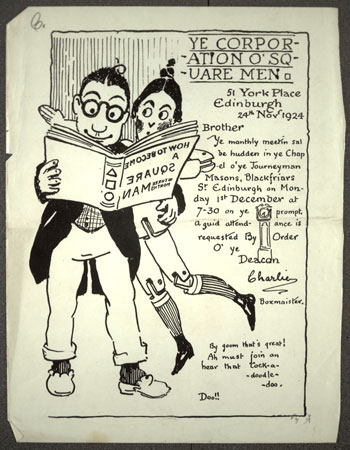 YE CORPOR-
-ATION O' SQ-
-UARE MEN
51 York Place
Edinburgh
24th Nov 1924
Brother
Ye monthly meetin sal
be hudden in ye Chap
el o'ye Journeyman
Masons, Blackfriars
St Edinburgh on Mon-
day 1st December at
7-30 on ye prompt.
a guid attend- ance is
requested By Order
O' ye
Deacon
Charlie
Boxmaister.
HOW TO BECOME
A
SQUARE
MAN
WITHOUT
By goom that's great!
Ah must join an
hear that Cock-a-
-doodle-
-doo.
Doo!!